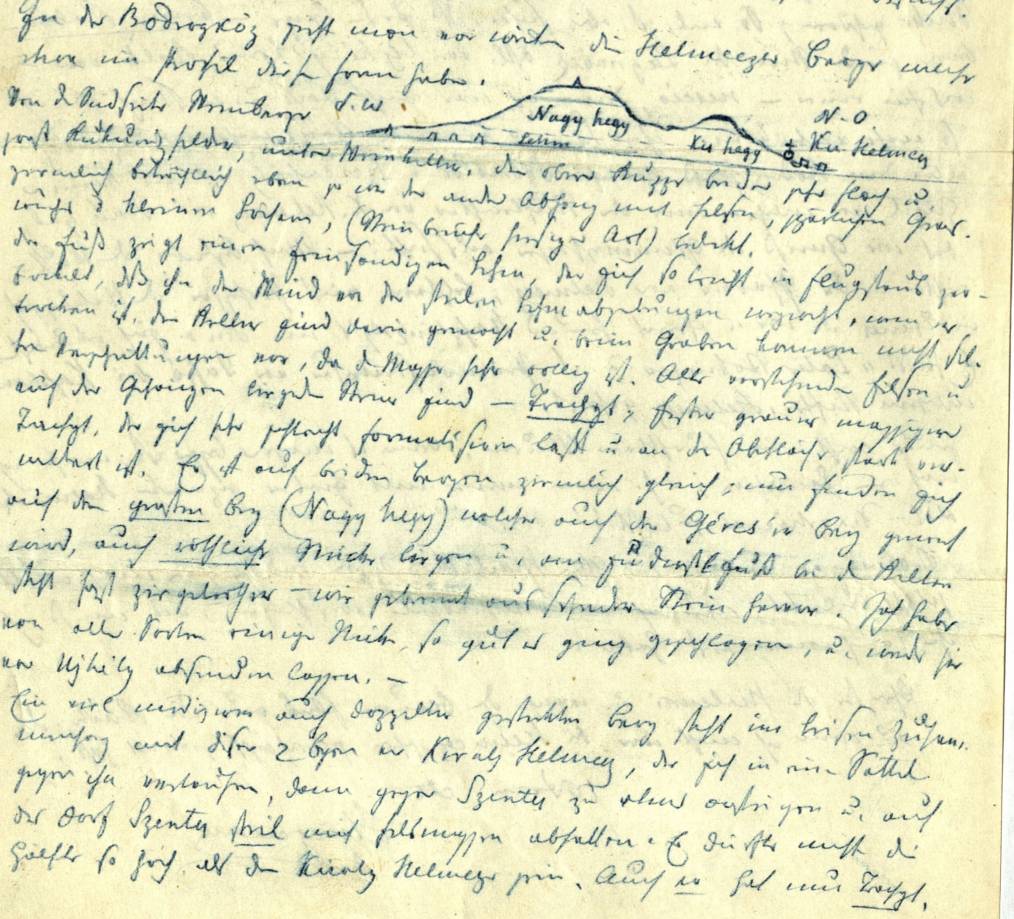 In der Bodrogköz sieht man von weitem die Helmeczer Berge welche
im Profil diese Form haben.
Von d. Südseite Weinberge S.W
Nagy hegy
Lehm
Kis hegy
N-O
Kis-Helmecz
sonst Kukuruzfelder, unter Weinkeller. Die obere Kuppe beider sehr flach u.
ziemlich beträchtlich eben so wie der andere Abhang mit Felsen, spärlichen Gras-
wuchs u kleinen Löchern, (Steinbrüche hiesiger Art) bedeckt.
Der Fuß zeigt einen feinsandigen Lehm, der sich so leicht in Flugstaub ver-
wandelt, daß ihn der Wind von den steilen Lehmabgrabungen, wenn er
trocken ist. Die Keller sind darin gemacht u. beim Graben kommen nicht sel-
ten Verschüttungen vor, da d. Masse sehr ist. Alle vorstehenden Felsen u
auf den Gehängen liegende Steine sind — Trachyt; fester grauer massiger
Trachyt, der sich sehr schlecht formatisiren läßt u an der Oberfläche stark ver-
wittert ist. Es ist auf beiden Bergen ziemlich gleich; nur finden sich
auf dem großen Berg (Nagy hegy) welcher auch der Géres'er Berg genannt
wird, auch röthliche Stücke liegen u. am Südwestfuß bei d. Kellern
steht fast ziegelrother — wie gebrannt aussehender Stein hervor. Ich habe
von allen Sorten einige Stücke, so gut es ging geschlagen, u. werde sie
von Ujhely absenden lassen. —
Ein viel niedrigerer auch doppelter gestreckter Berg steht im leisen Zusam-
menhang mit diesen 2 Bergen von Király Helmecz, der sich in einen Sattel
gegen ihn verlaufen, dann gegen Szentes zu etwas ansteigen u. auf
das Dorf Szentes steil mit Felsmassen abfallen. Er dürfte nicht die
Hälfte so hoch, als der Király Helmeczer sein. Auch er hat nur Trachyt.